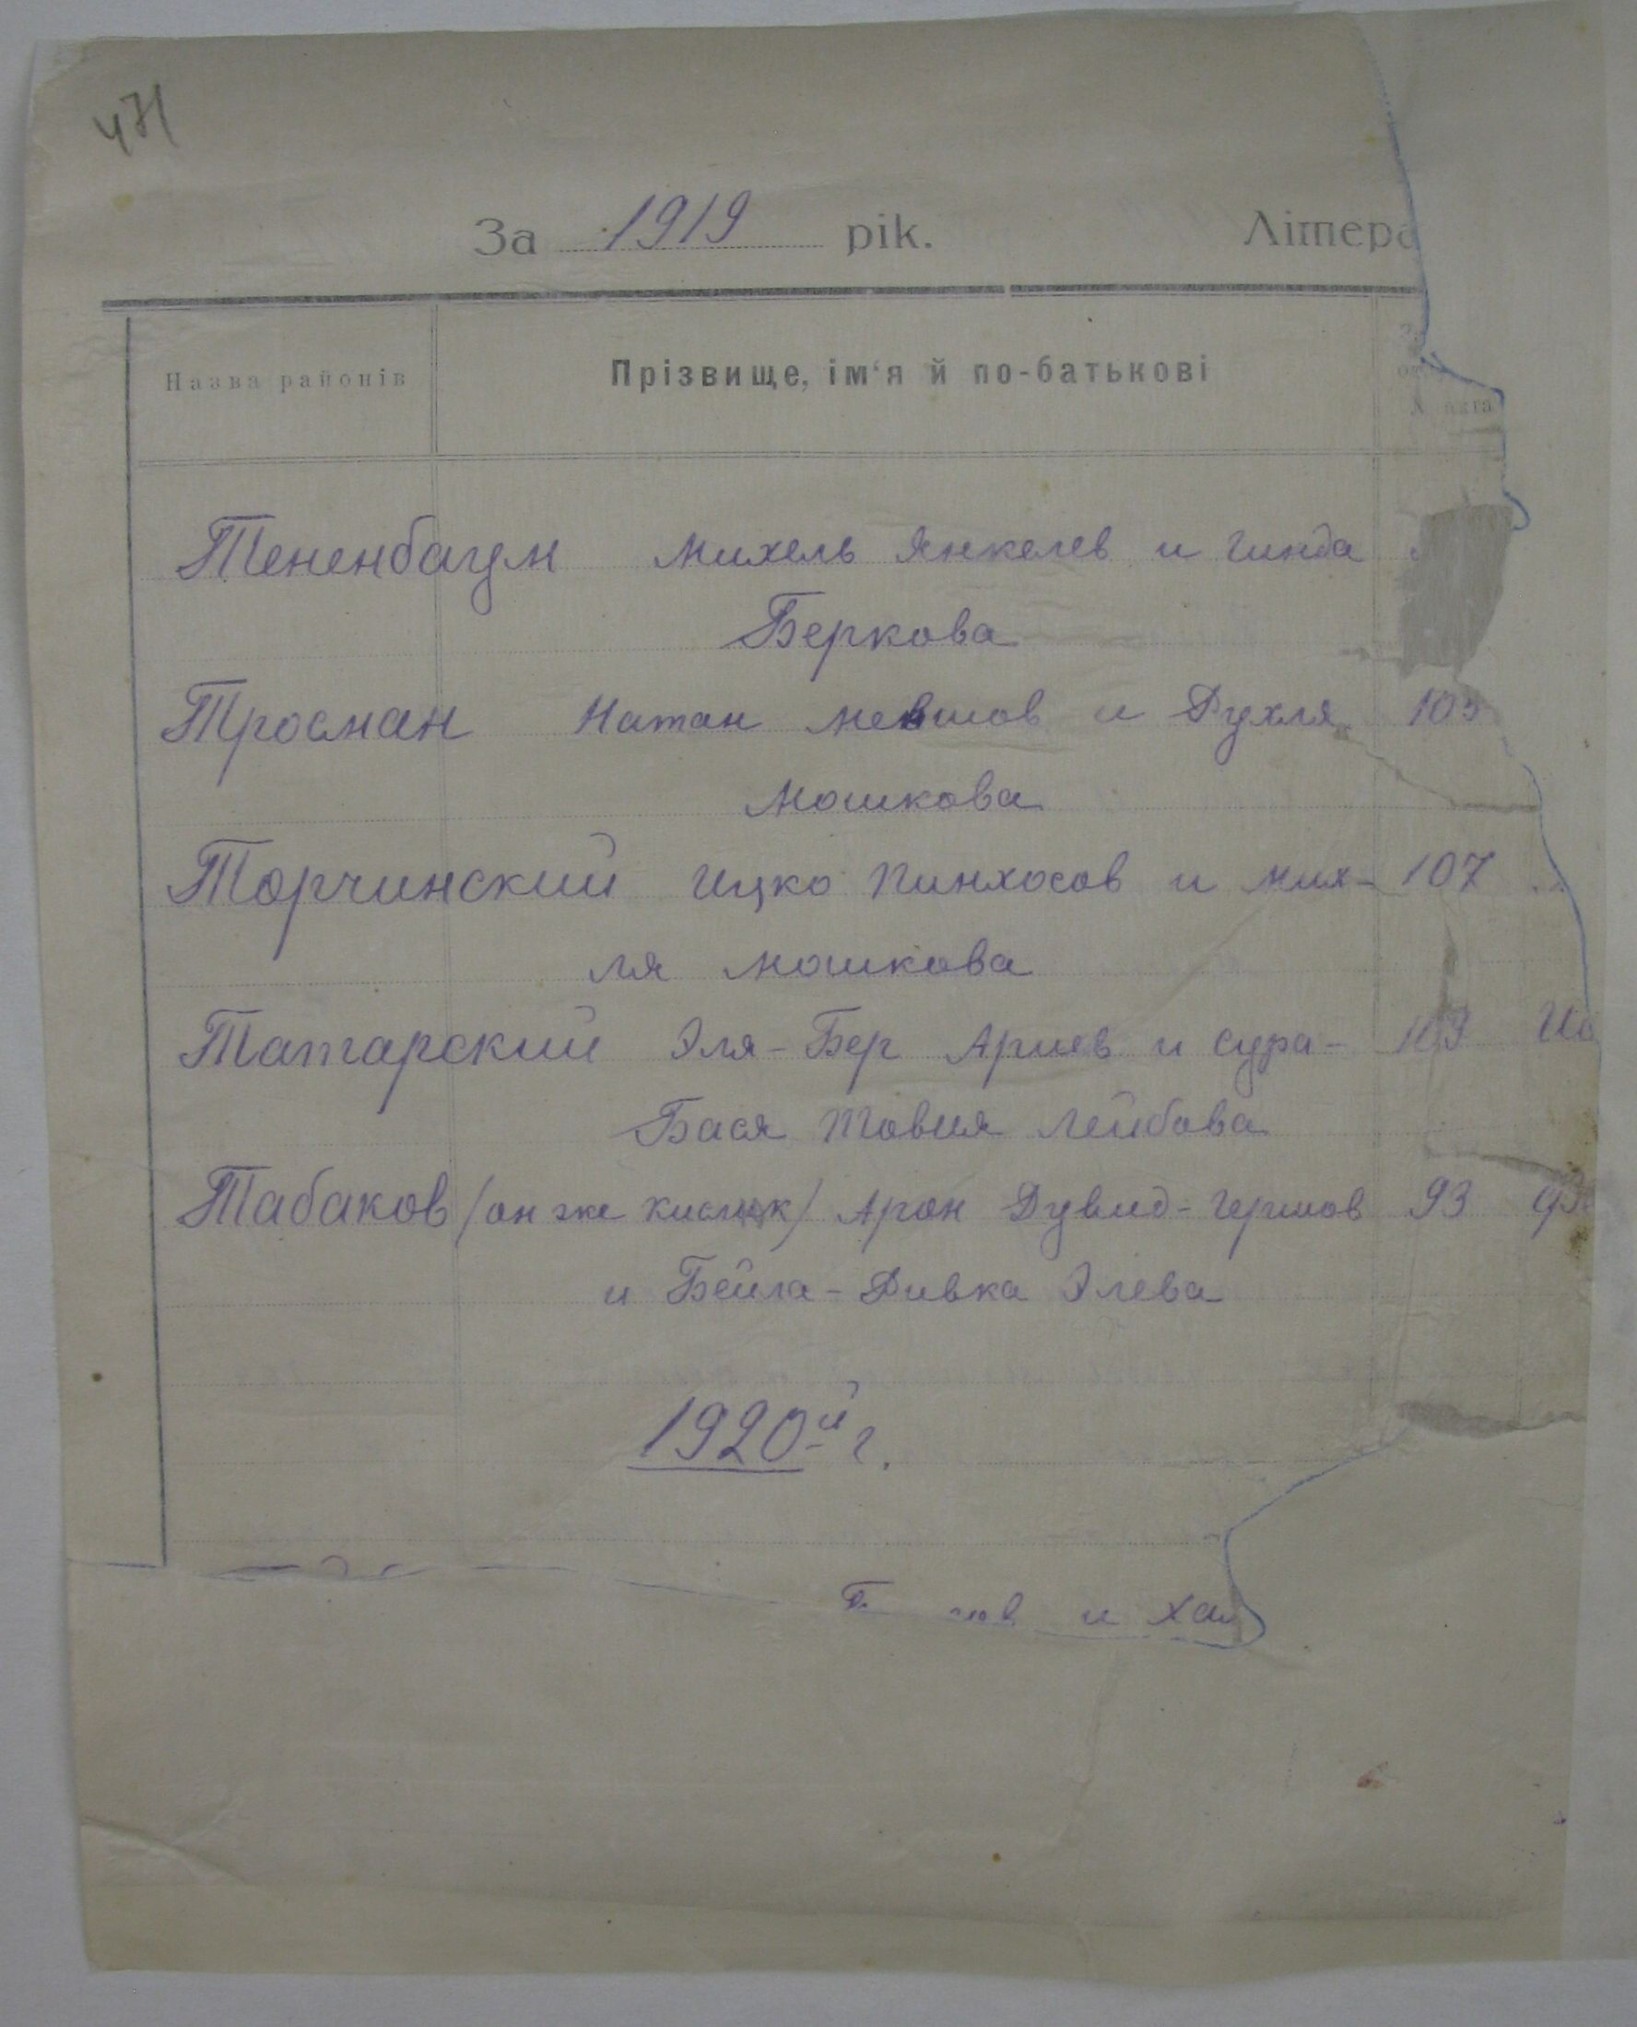 471
За 1919 рік. Літера
Назва районів Прізвище, ім'я й по-батькові акта
Тененбаум Михель Янкелев и Гинда
Беркова
Тросман Натан Мевшов и Рухля 105
Мошкова
Торчинский Ицко Пинхосов и Мих- 107
ля Мошкова
Татарский Эля-Бер Ариев и Сура- 109 Ио
Бася Товия Лейбова
Табаков (он же ) Арон Дувид-Гершов 93
и Бейла-Ривка Элева
1920й г.
и Ха